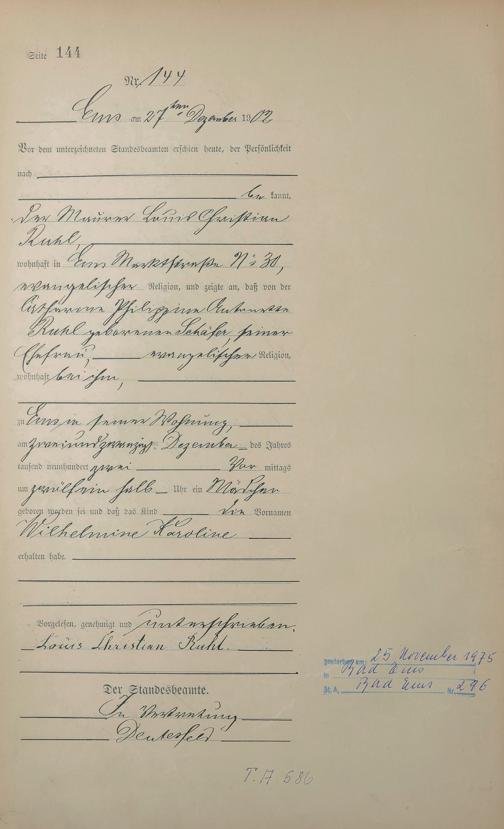 Seite 144
Nr. 144
Ems am 27ten Dezember 1902
Vor dem unterzeichneten Standesbeamten erschien heute, der Persönlichkeit
nach
be kannt,
der Maurer Louis Christian
Ruhl,
wohnhaft in Ems Marktstraße No 30,
evangelischer Religion, und zeigte an, daß von der
Catharine Philippine Antonette
Ruhl geborenen Schäfer, seiner
Ehefrau, evangelischer Religion,
wohnhaft bei ihm,
zu Ems in seiner Wohnung,
am zweiundzwanzigsten Dezember des Jahres
tausend neunhundert zwei Vor mittags
um zwölf ein halb Uhr ein Mädchen
geboren worden sei und daß das Kind die Vornamen
Wilhelmine Karoline
erhalten habe.
Vorgelesen, genehmigt und unterschrieben.
Louis Christian Ruhl.
Der Standesbeamte.
In Vertretung
gestorben am 25 November 1975
in Bad Ems
St. A. Bad Ems Nr. 296
T. A 686